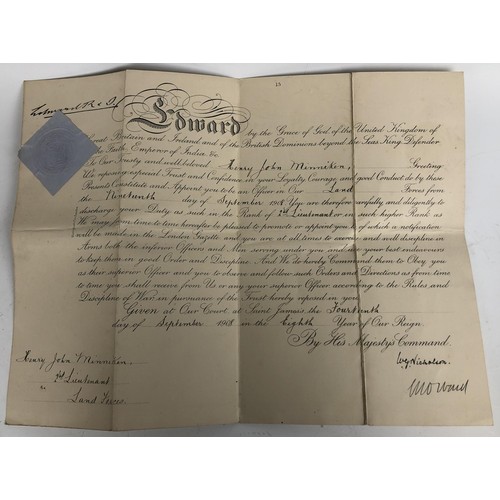 Edward R & I
15
Edward by the Grace of God of the United Kingdom of
Great Britain and Ireland and of the British Dominions beyond the Seas King Defender
of the Faith, Emperor of India, &c.
To Our Trusty and well beloved Henry John Minniken, Greeting
We reposing especial Trust and Confidence in your Loyalty Courage and good Conduct do by these
Presents Constitute and Appoint you to be an Officer in Our Land Forces from
the Nineteenth day of September 1908. You are therefore carefully and diligently to
discharge your Duty as such in the Rank of 2nd Lieutenant or in such higher Rank as
We may from time to time hereafter be pleased to promote or appoint you to of which a notification
will be made in the London Gazette and you are at all times to exercise and well discipline in
Arms both the inferior Officers and Men serving under you and use your best endeavours
to keep them in good Order and Discipline. And We do hereby Command them to Obey you
as their superior Officer and you to observe and follow such Orders and Directions as from time
to time you shall receive from Us or any your superior Officer according to the Rules and
Discipline of War in pursuance of the Trust hereby reposed in you
Given at Our Court at Saint James's the Fourteenth
day of September 1908 in the Eighth Year of Our Reign.
By His Majesty's Command.
Henry John Minniken
2nd Lieutenant
Land Forces
Nicholson